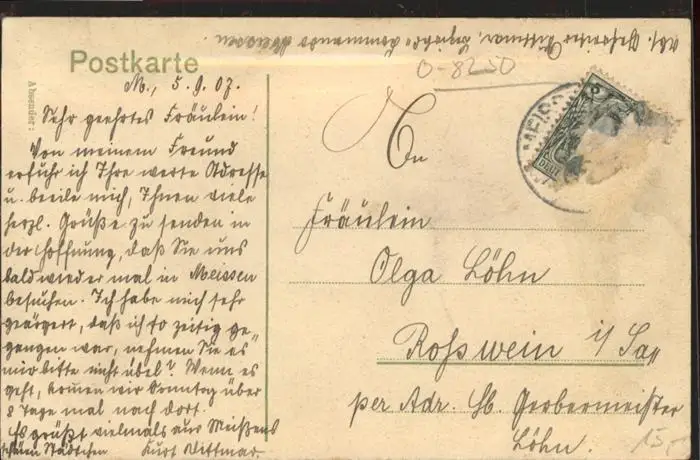 Abs. Gefreiter Dittmar, Bezirks-Commando Meissen.
Postkarte
O-8250
Absender:
M., 5.9.07.
Sehr geehrtes Fräulein!
Von meinem Freund
erfuhr ich Ihre werte Adresse
u. beeile mich, Ihnen viele
herzl. Grüße zu senden in
der Hoffnung, daß Sie uns
bald wieder mal in Meissen
besuchen. Ich habe mich sehr
geärgert, daß ich so zeitig ge-
gangen war, nehmen Sie es
mir bitte nicht übel? Wenn es
geht, komen wir Sonntag über
8 Tage mal nach dort.
Es grüßt vielmals aus Meißens
schönen Städtchen Kurt Dittmar.
MEISS
5
An
Fräulein
Olga Löhn
Roßwein i/Sa
per Adr. H. Gerbermeister
Löhn.
15,-